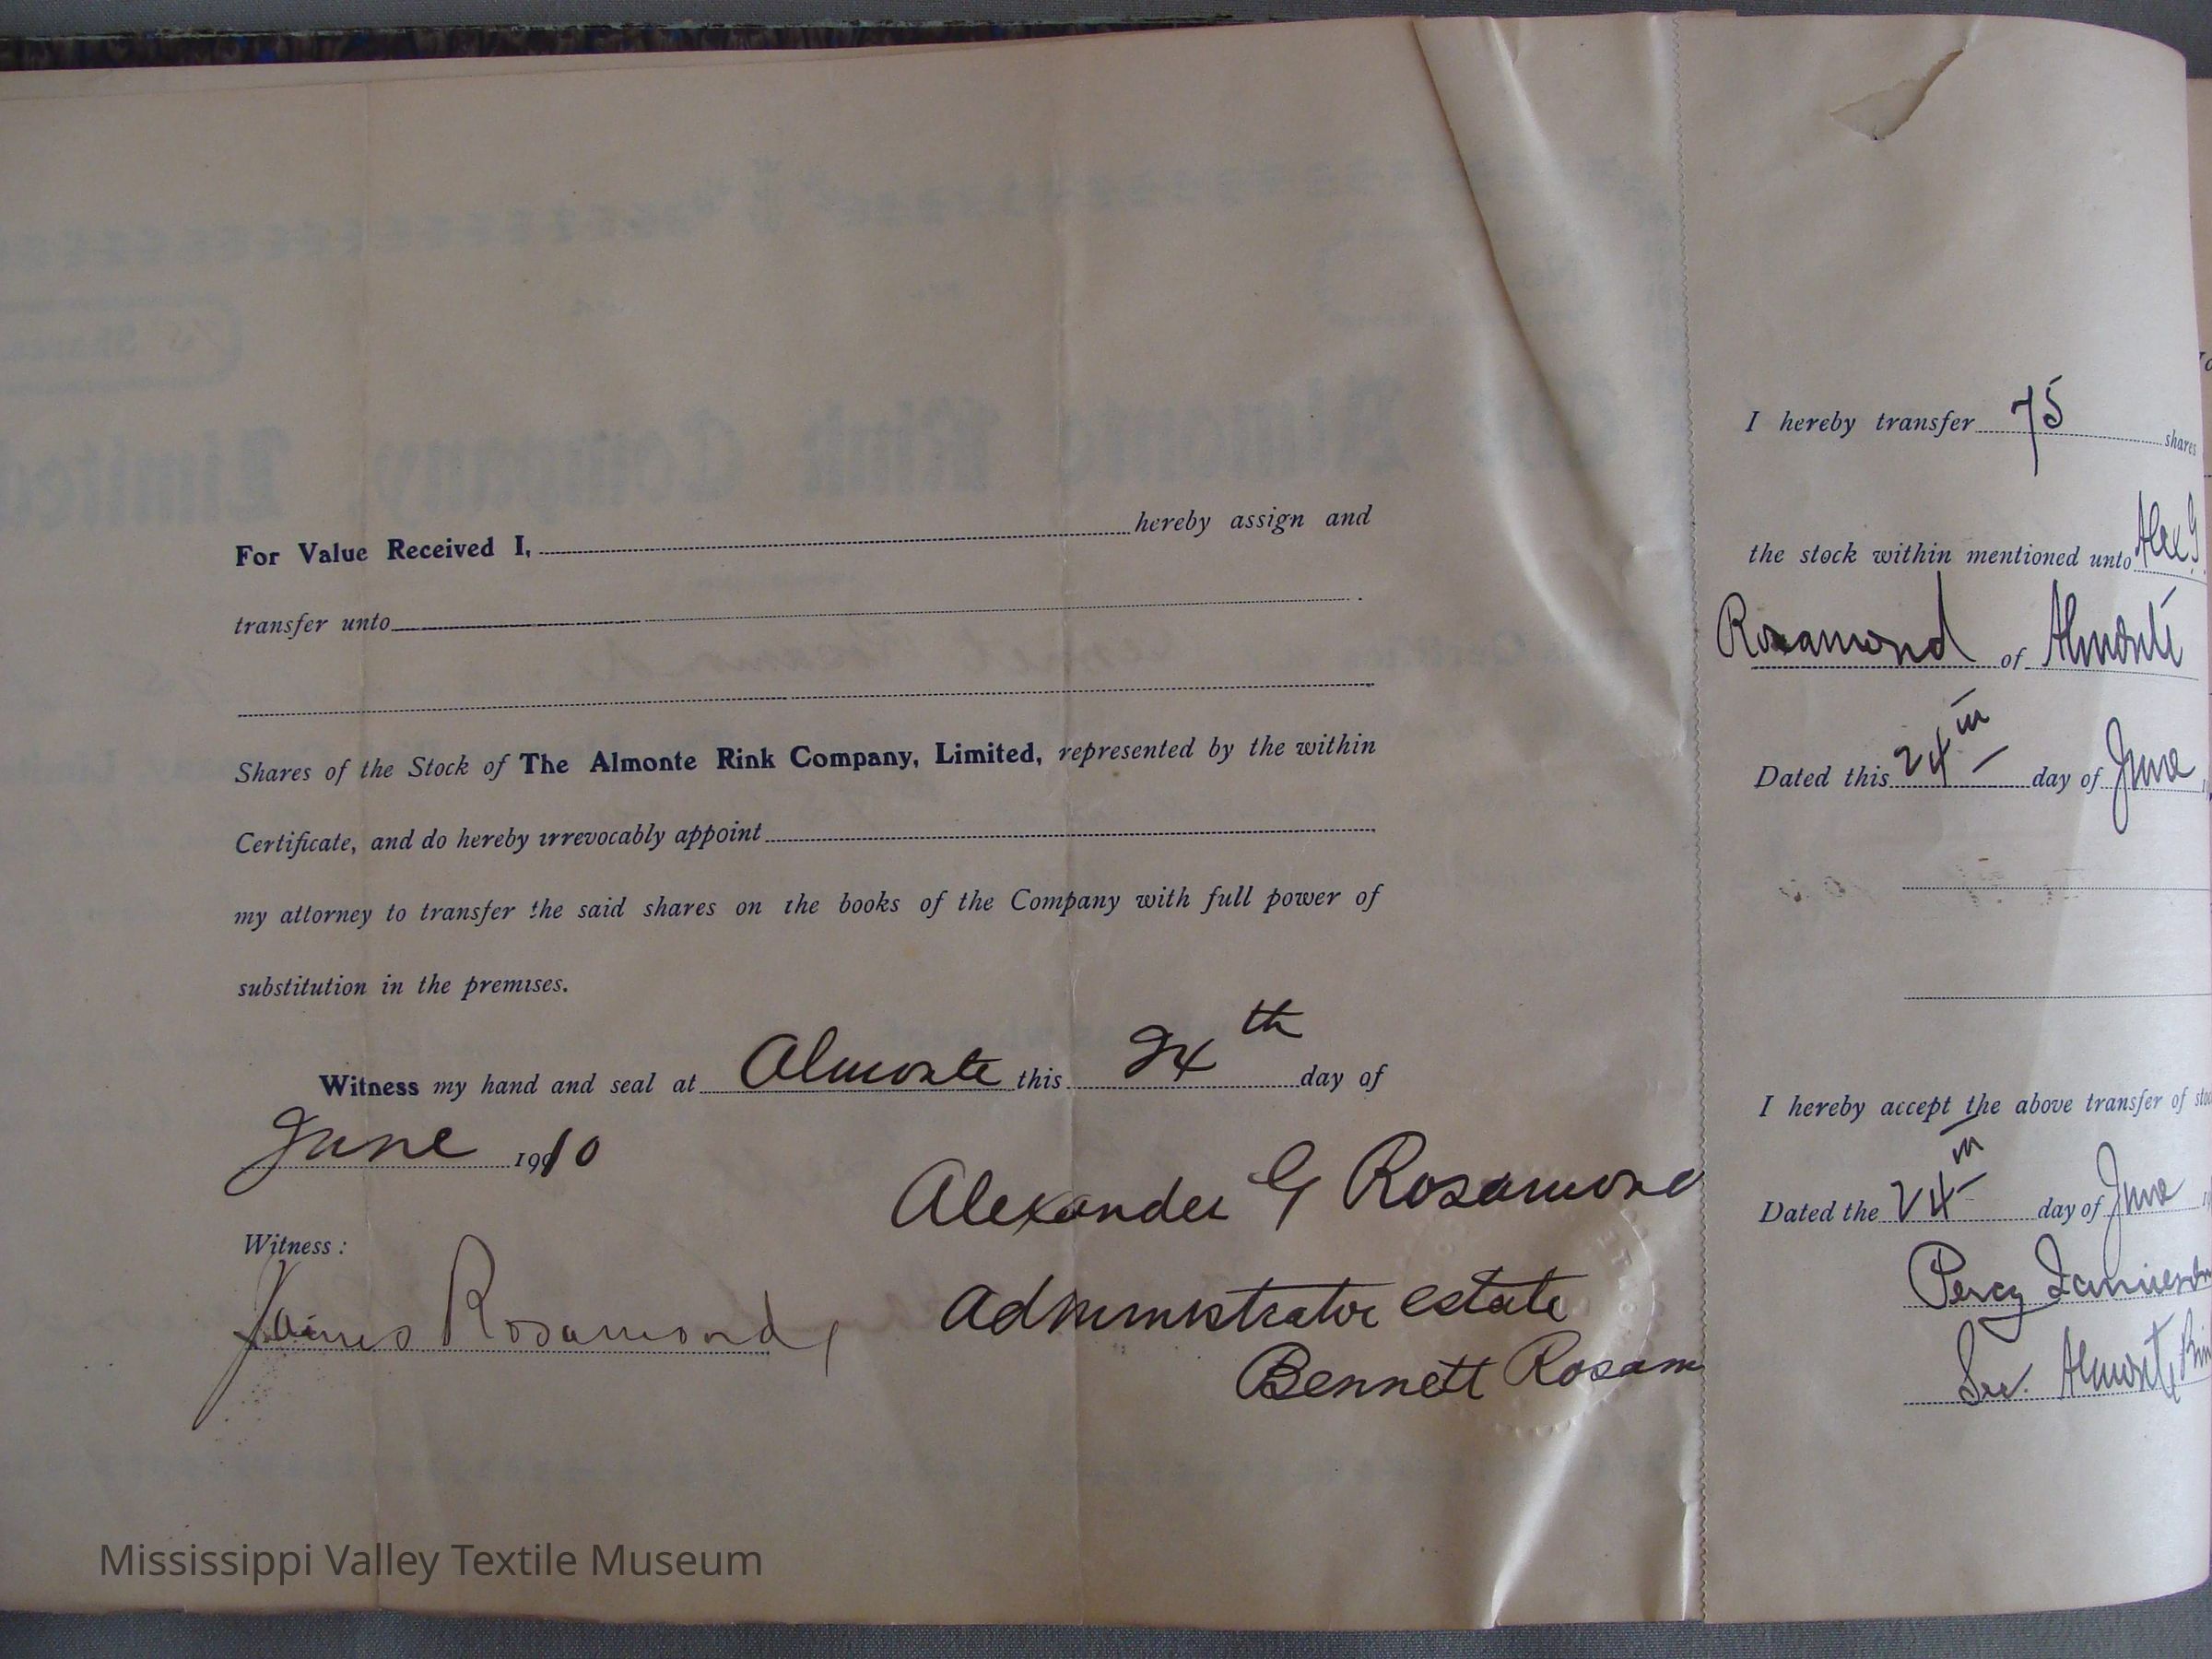 For Value Received I, hereby assign and
transfer unto
Shares of the Stock of The Almonte Rink Company, Limited, represented by the within
Certificate, and do hereby irrevocably appoint
my attorney to transfer the said shares on the books of the Company with full power of
substitution in the premises.
Witness my hand and seal at Almonte this 24th day of
June 1910
Alexander G Rosamond
Witness :
James Rosamond,
Administrator estate
Bennett Rosam
I hereby transfer 75 shares
the stock within mentioned unto Alex G.
Rosamond of Almonte
Dated this 24th day of June
I hereby accept the above transfer of stoc
Dated the 24th day of June
Percy Jamieson
Sec. Almonte Rin
Mississippi Valley Textile Museum